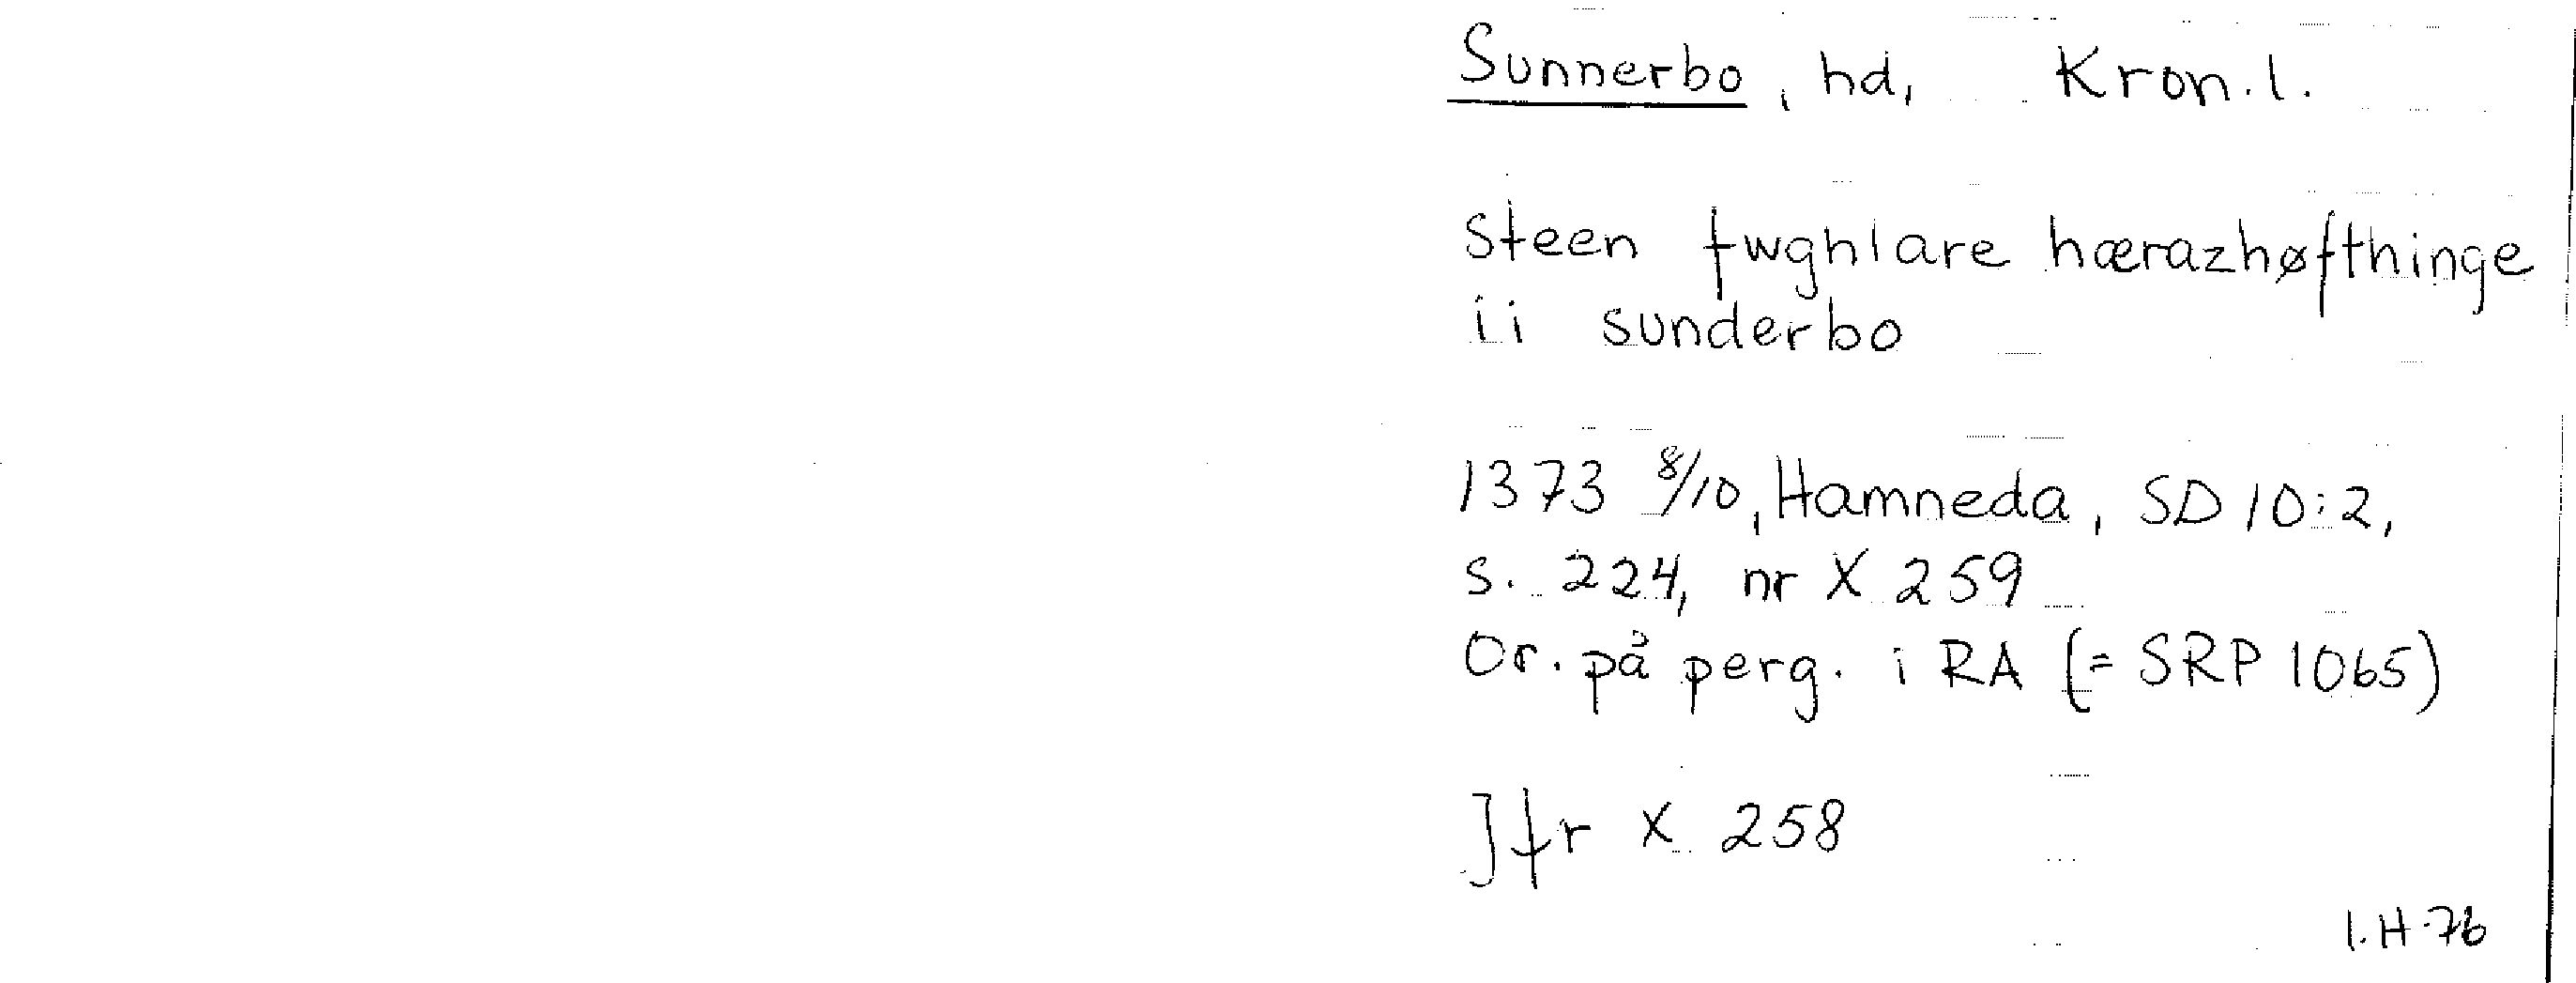 Sunnerbo, hd, Kron.l.
Steen fwghlare hærazhøfthinge
ii sunderbo
1373 8/10, Hamneda, SD 10:2,
s. 224, nr X 259
Or. på perg. i RA (= SRP 1065)
Jfr X 258
I.H-76